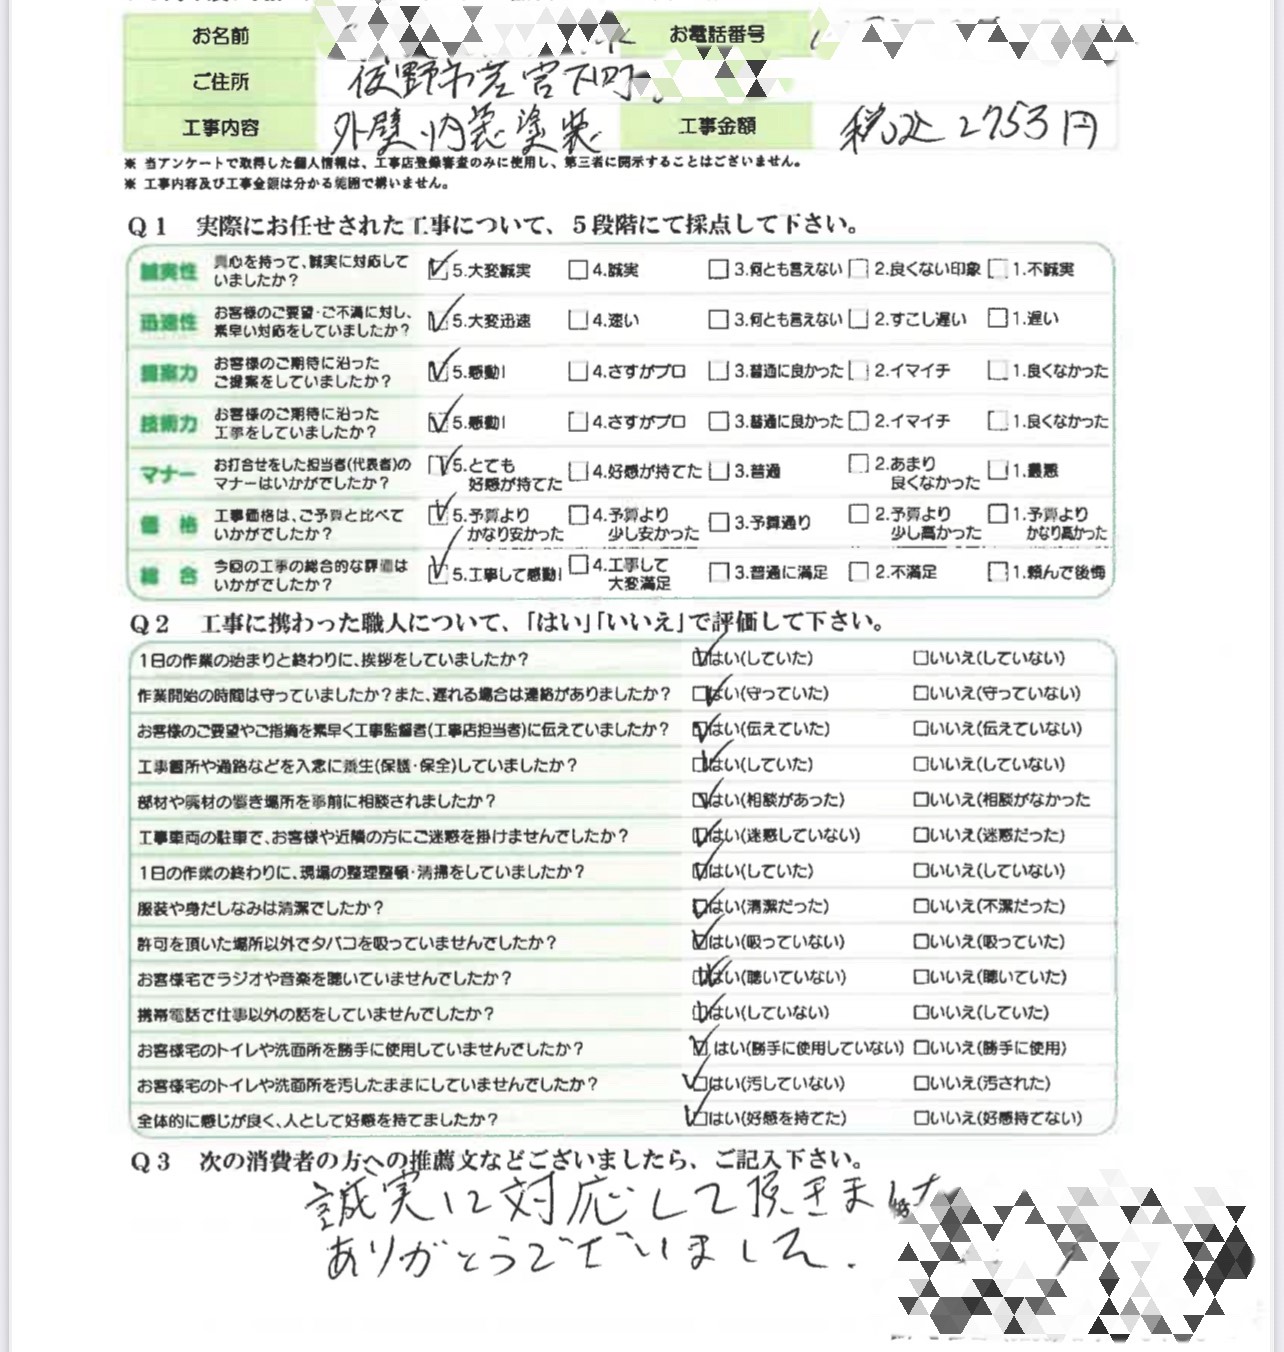 お名前 お電話番号
ご住所 佐野市若宮下町
工事内容 外壁、内装塗装 工事金額 税込 2753円
※ 当アンケートで取得した個人情報は、工事店登録審査のみに使用し、第三者に開示することはございません。
※ 工事内容及び工事金額は分かる範囲で構いません。
Q1 実際にお任せされた工事について、5段階にて採点して下さい。
誠実性 真心を持って、誠実に対応していましたか? 5.大変誠実 4.誠実 3.何とも言えない 2.良くない印象 1.不誠実
迅速性 お客様のご要望・ご不満に対し、素早い対応をしていましたか? 5.大変迅速 4.速い 3.何とも言えない 2.すこし遅い 1.遅い
提案力 お客様のご期待に沿ったご提案をしていましたか? 5.感動! 4.さすがプロ 3.普通に良かった 2.イマイチ 1.良くなかった
技術力 お客様のご期待に沿った工事をしていましたか? 5.感動! 4.さすがプロ 3.普通に良かった 2.イマイチ 1.良くなかった
マナー お打合せをした担当者(代表者)のマナーはいかがでしたか? 5.とても好感が持てた 4.好感が持てた 3.普通 2.あまり良くなかった 1.最悪
価格 工事価格は、ご予算と比べていかがでしたか? 5.予算よりかなり安かった 4.予算より少し安かった 3.予算通り 2.予算より少し高かった 1.予算よりかなり高かった
総合 今回の工事の総合的な評価はいかがでしたか? 5.工事して感動! 4.工事して大変満足 3.普通に満足 2.不満足 1.頼んで後悔
Q2 工事に携わった職人について、「はい」「いいえ」で評価して下さい。
1日の作業の始まりと終わりに、挨拶をしていましたか? はい(していた) いいえ(していない)
作業開始の時間は守っていましたか?また、遅れる場合は連絡がありましたか? はい(守っていた) いいえ(守っていない)
お客様のご要望やご指摘を素早く工事監督者(工事店担当者)に伝えていましたか? はい(伝えていた) いいえ(伝えていない)
工事箇所や通路などを入念に養生(保護・保全)していましたか? はい(していた) いいえ(していない)
部材や廃材の置き場所を事前に相談されましたか? はい(相談があった) いいえ(相談がなかった
工事車両の駐車で、お客様や近隣の方にご迷惑を掛けませんでしたか? はい(迷惑していない) いいえ(迷惑だった)
1日の作業の終わりに、現場の整理整頓・清掃をしていましたか? はい(していた) いいえ(していない)
服装や身だしなみは清潔でしたか? はい(清潔だった) いいえ(不潔だった)
許可を頂いた場所以外でタバコを吸っていませんでしたか? はい(吸っていない) いいえ(吸っていた)
お客様宅でラジオや音楽を聴いていませんでしたか? はい(聴いていない) いいえ(聴いていた)
携帯電話で仕事以外の話をしていませんでしたか? はい(していない) いいえ(していた)
お客様宅のトイレや洗面所を勝手に使用していませんでしたか? はい(勝手に使用していない) いいえ(勝手に使用)
お客様宅のトイレや洗面所を汚したままにしていませんでしたか? はい(汚していない) いいえ(汚された)
全体的に感じが良く、人として好感を持てましたか? はい(好感を持てた) いいえ(好感持てない)
Q3 次の消費者の方への推薦文などございましたら、ご記入下さい。
誠実に対応して頂きました
ありがとうございました.